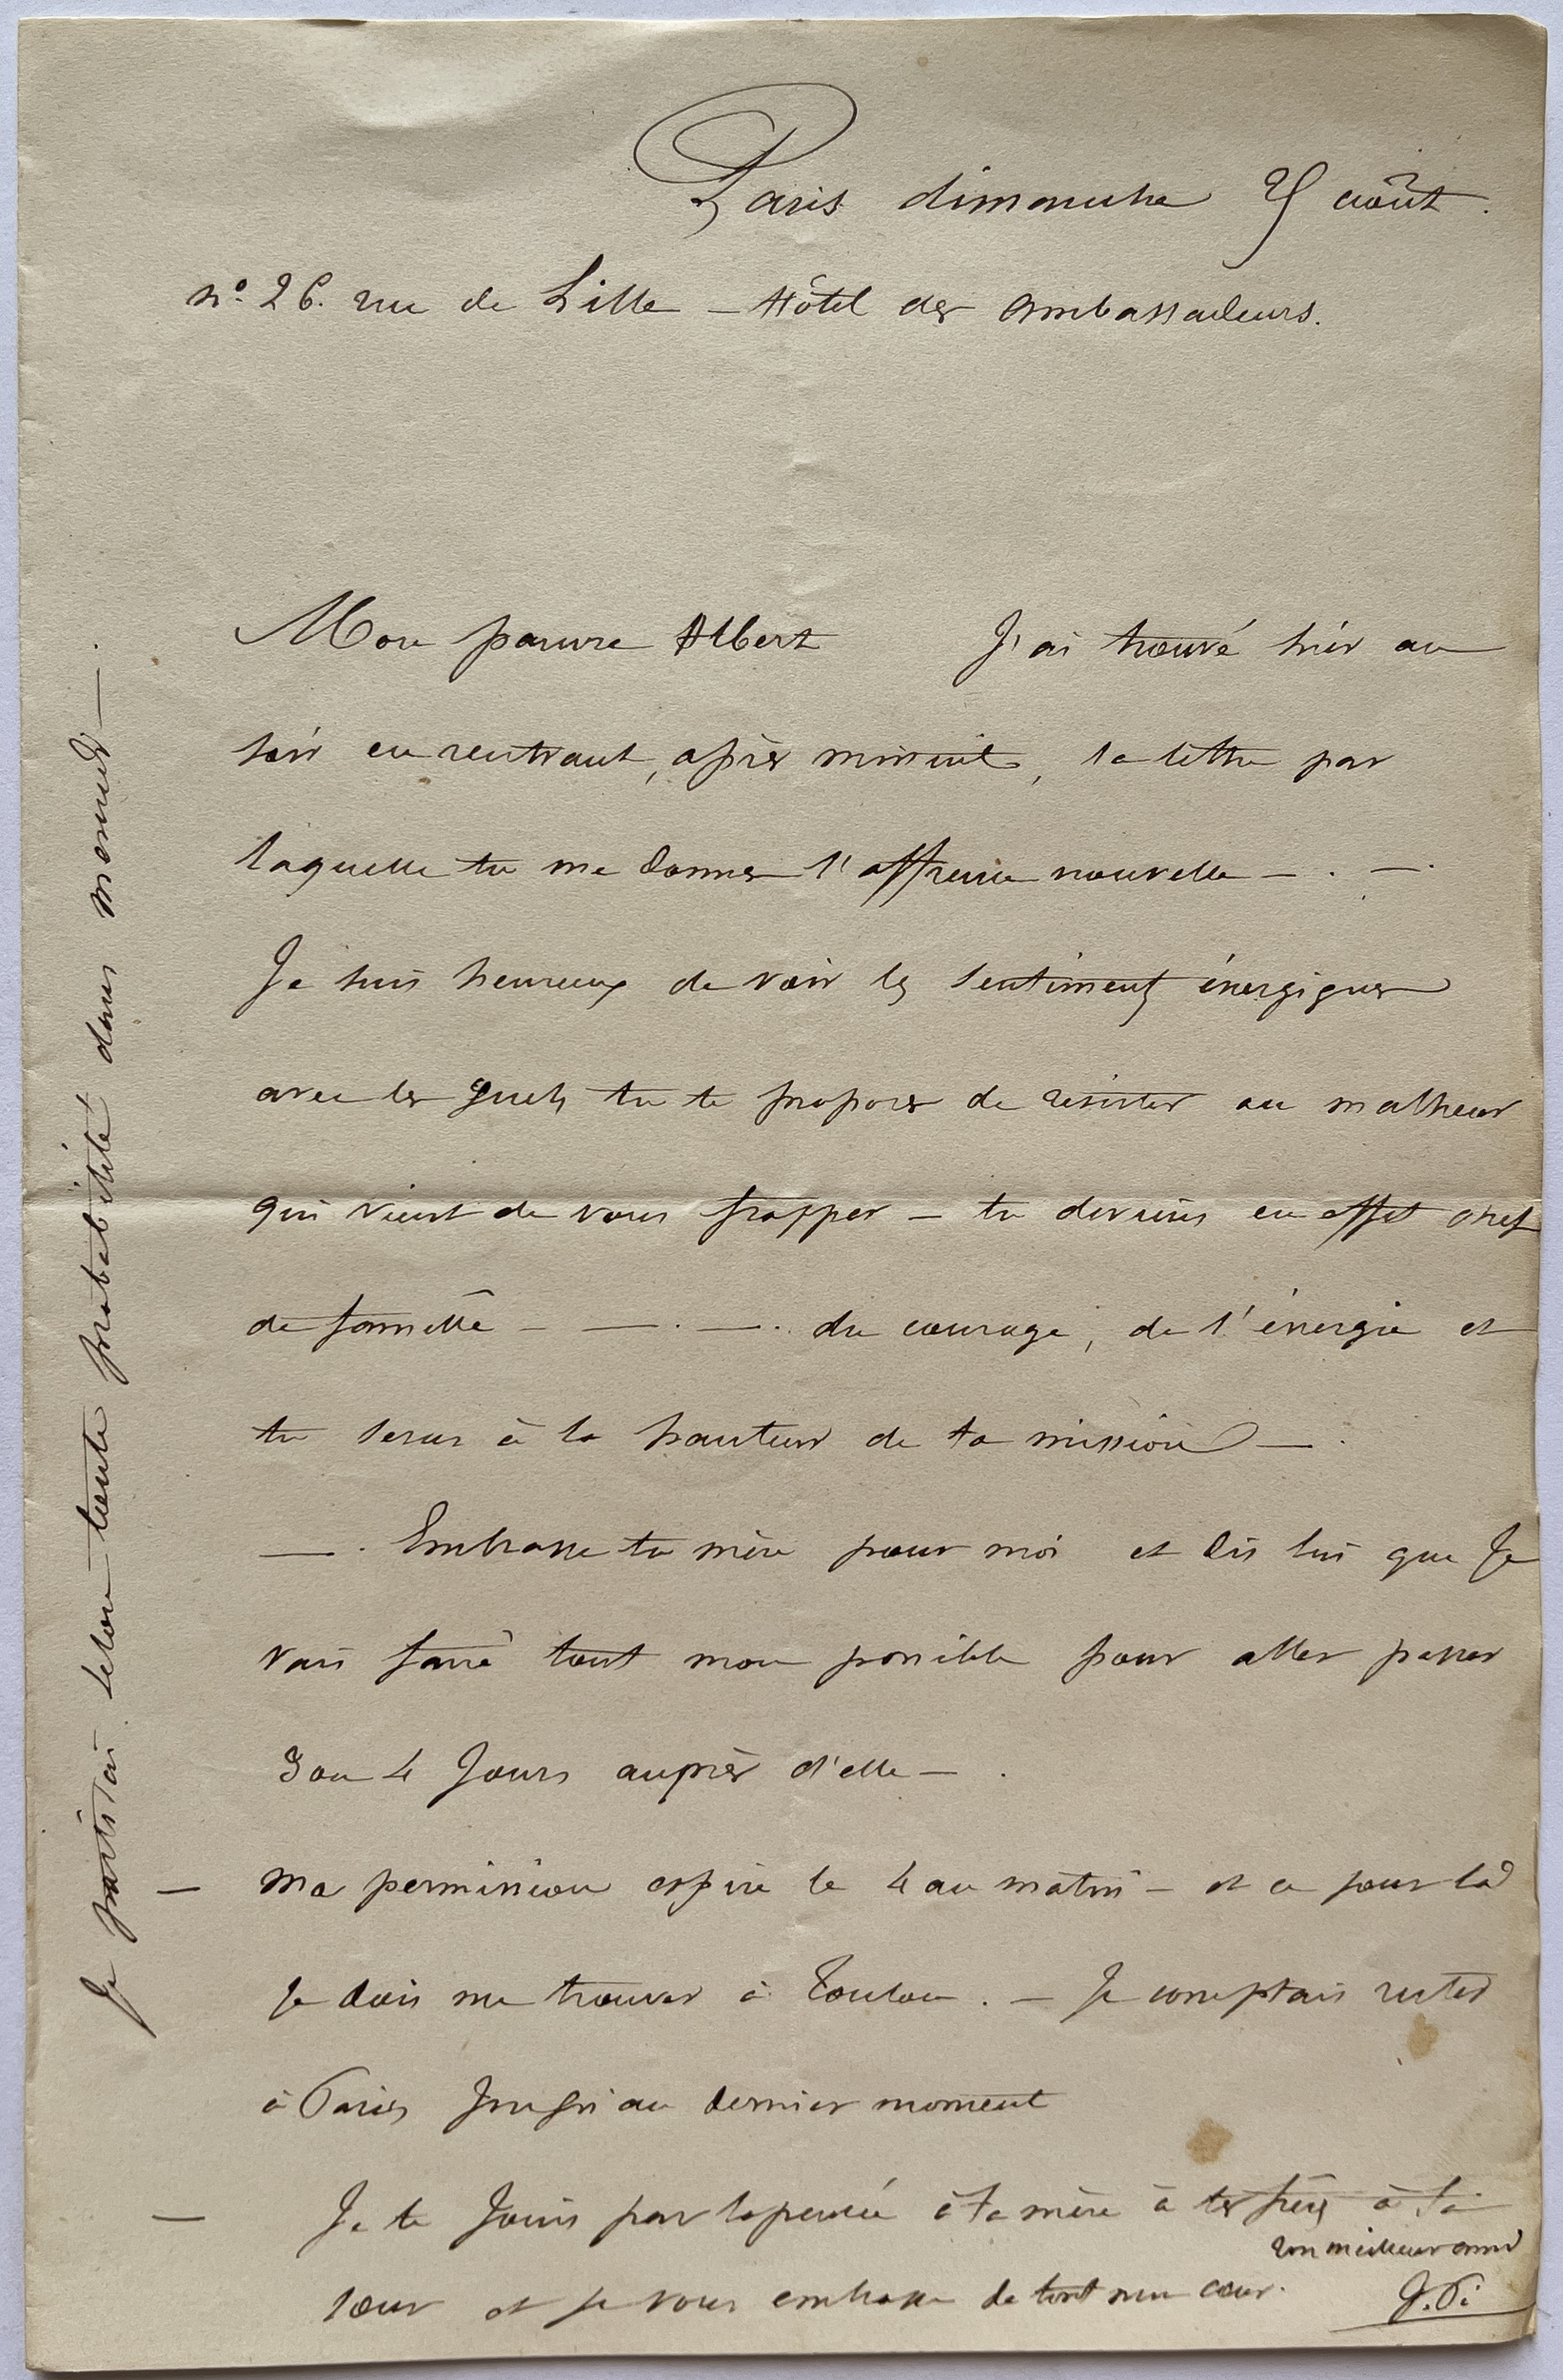 Paris dimanche août.
n° 26. rue de Lille — Hôtel des Ambassadeurs.
Mon pauvre Albert J'ai trouvé hier au
soir en rentrant, après minuit, la lettre par
laquelle tu me donnes l'affreuse nouvelle — . — .
Je suis heureux de voir les sentiments énergiques
avec les quels tu te proposes de résister au malheur
qui vient de vous frapper — tu deviens en effet chef
de famille — — . — . du courage, de l'énergie et
tu seras à la hauteur de ta mission — .
— . Embrasse ta mère pour moi et dis lui que Je
vais faire tout mon possible pour aller passer
3 ou 4 Jours auprès d'elle — .
— Ma permission expire le 4 au matin — et ce jour là
je dois me trouver à Toulon . — Je comptais rester
à Paris Jusqu'au dernier moment
— Je te Joins par la pensée à ta mère à tes frères à ta
sœur et je vous embrasse de tout mon cœur.
ton meilleur ami
Je partirai selon toute probabilité dans mercredi — .